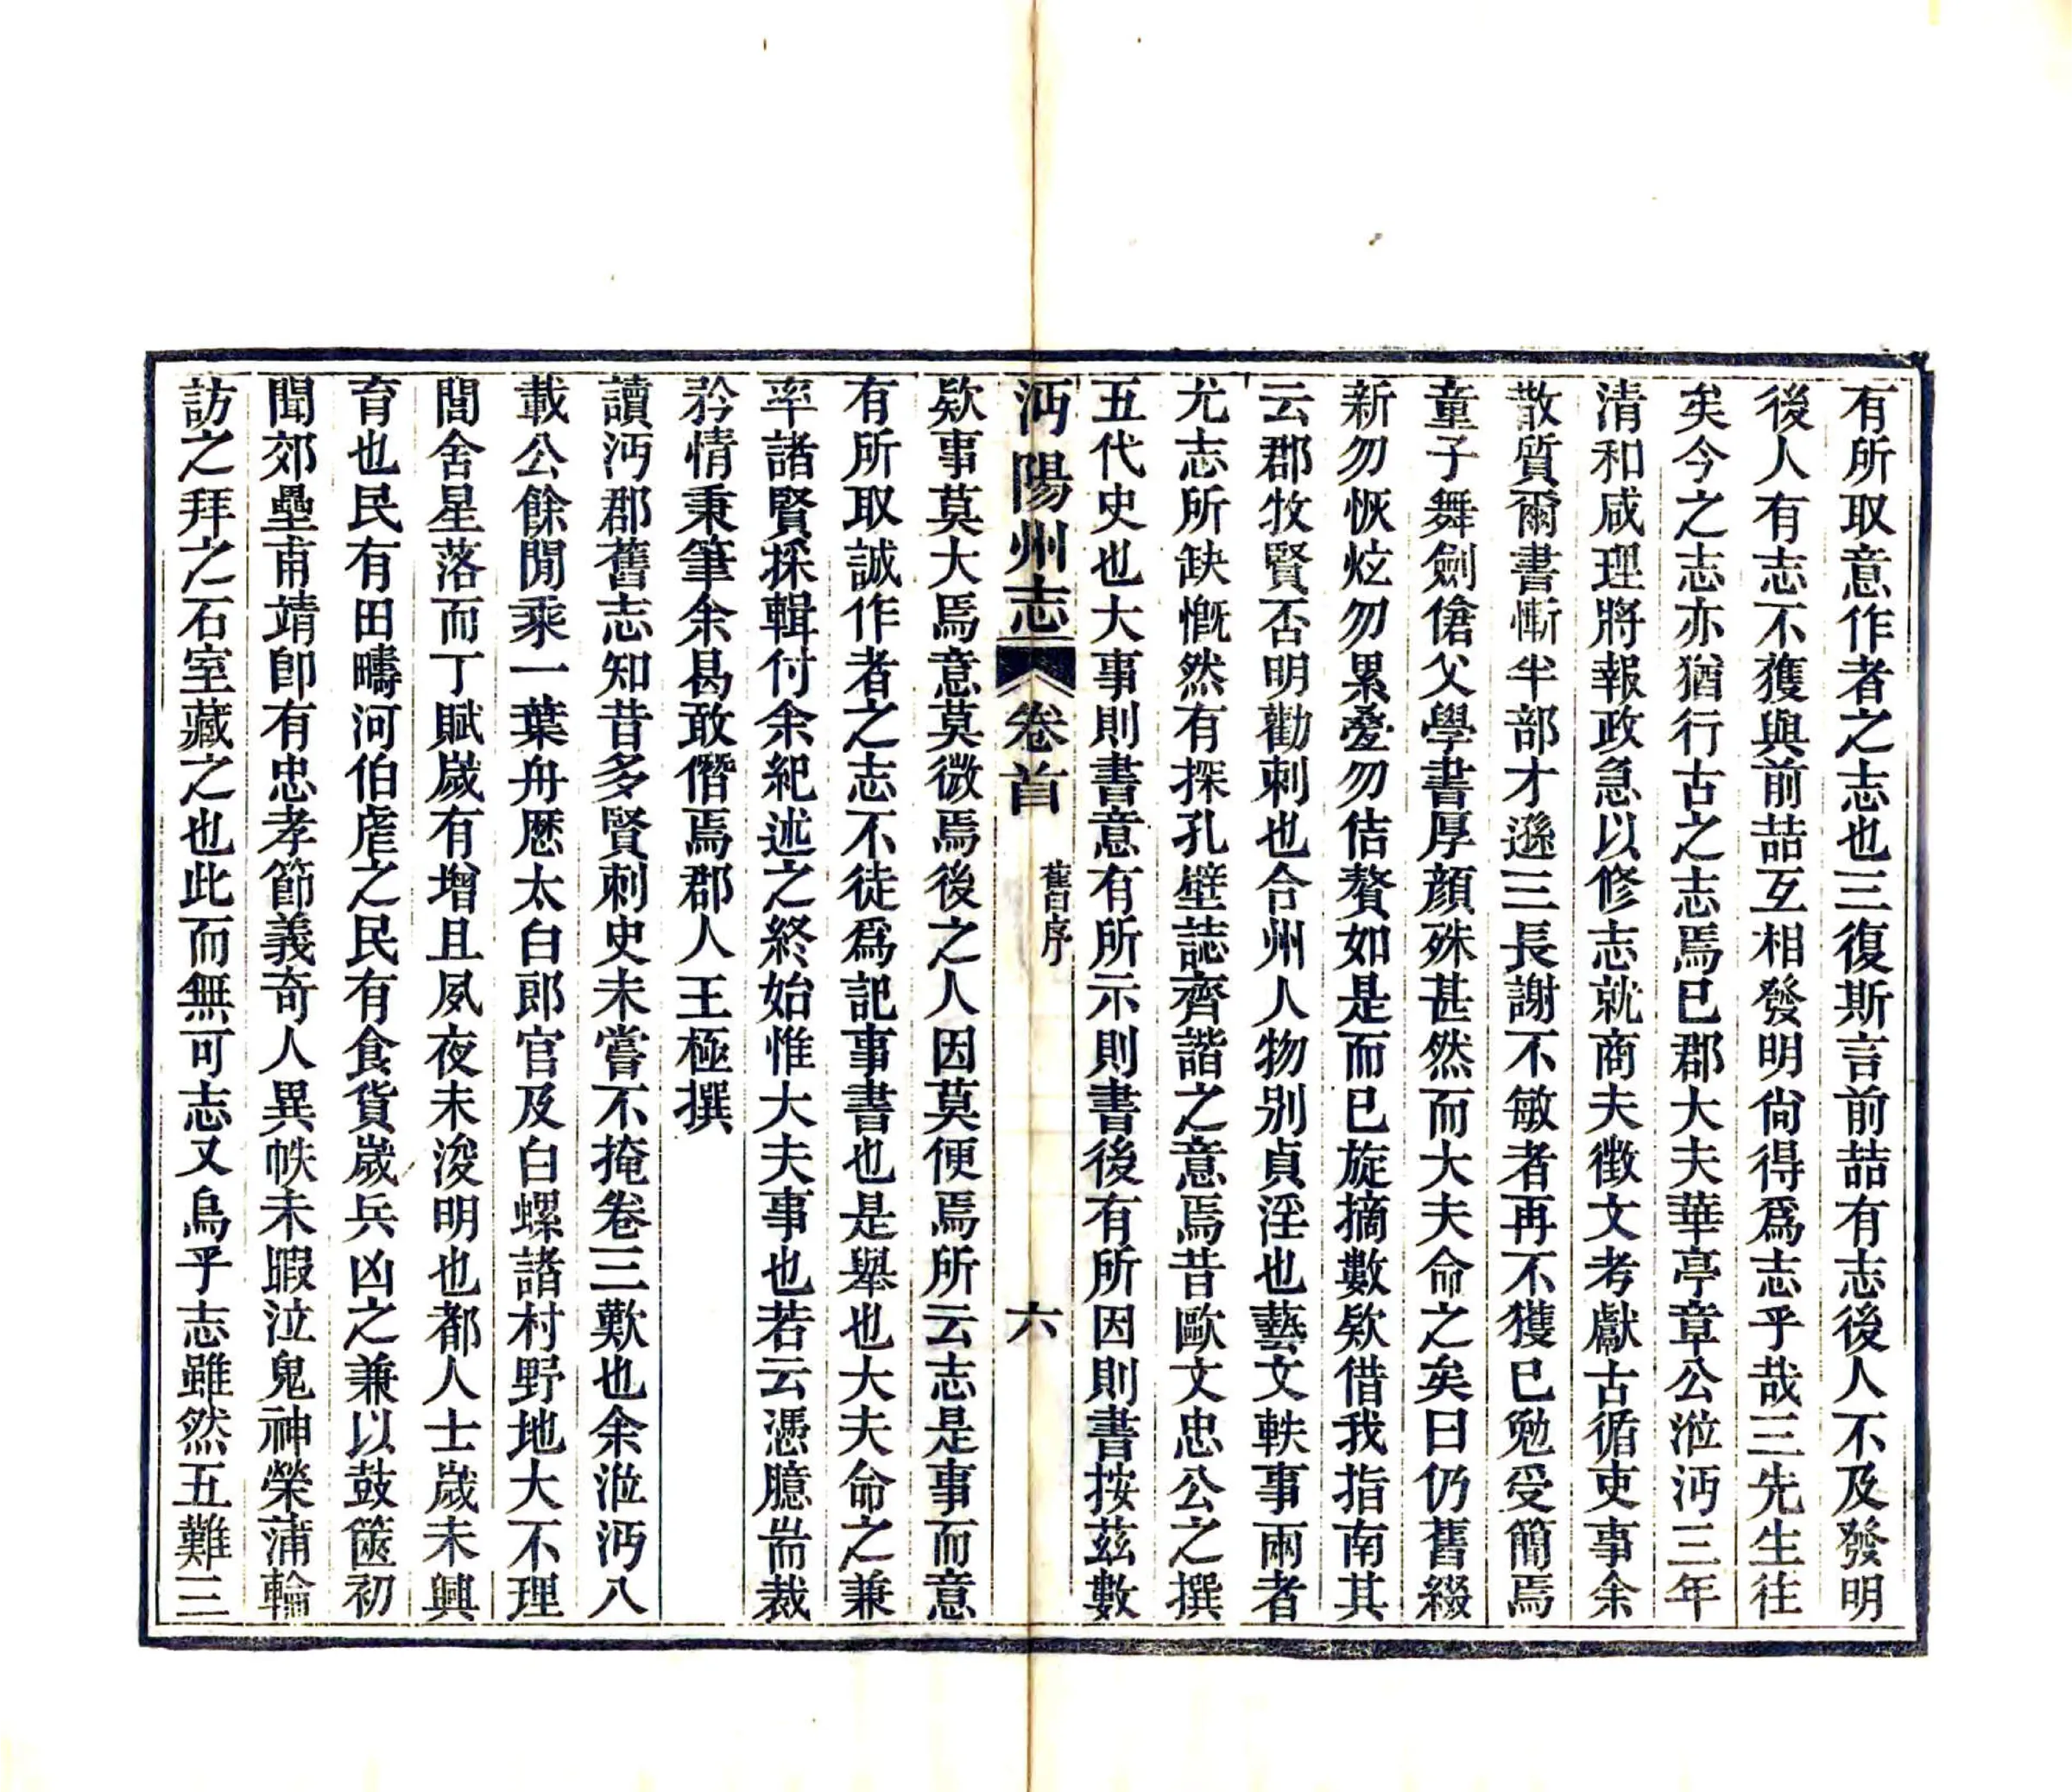 有所取意作者之志也三復斯言前喆有志後人不及發明
後人有志不獲與前喆互相發明尙得爲志乎哉三先生往
矣今之志亦猶行古之志焉已郡大夫華亭章公涖沔三年
清和咸理將報政急以修志就商夫徵文考獻古循吏事余
散質爾書慚半部才遜三長謝不敏者再不獲已勉受簡焉
童子舞劍傖父學書厚顔殊甚然而大夫命之矣曰仍舊綴
新勿恢炫勿累憂勿佶贅如是而已旋摘數欵借我指南其
云郡牧賢否明勸刺也合州人物別貞淫也藝文軼事兩者
尤志所缺慨然有探孔壁誌齊諧之意焉昔歐文忠公之撰
五代史也大事則書意有所示則書後有所因則書按茲數
沔陽州志 卷首 舊序 六
欵事莫大焉意莫微焉後之人因莫便焉所云志是事而意
有所取誠作者之志不徒爲記事書也是舉也大夫命之兼
率諸賢採輯付余紀述之終始惟大夫事也若云憑臆耑裁
矜情秉筆余曷敢僭焉郡人王極撰
讀沔郡舊志知昔多賢刺史未嘗不掩卷三歎也余涖沔八
載公餘閒乘一葉舟厯太白郎官及白螺諸村野地大不理
閭舍星落而丁賦歲有增且夙夜未浚明也都人士歲未興
育也民有田疇河伯虐之民有食貨歲兵凶之兼以鼓篋初
聞郊壘甫靖卽有忠孝節義奇人異帙未暇泣鬼神榮蒲輪
訪之拜之石室藏之也此而無可志又烏乎志雖然五難三